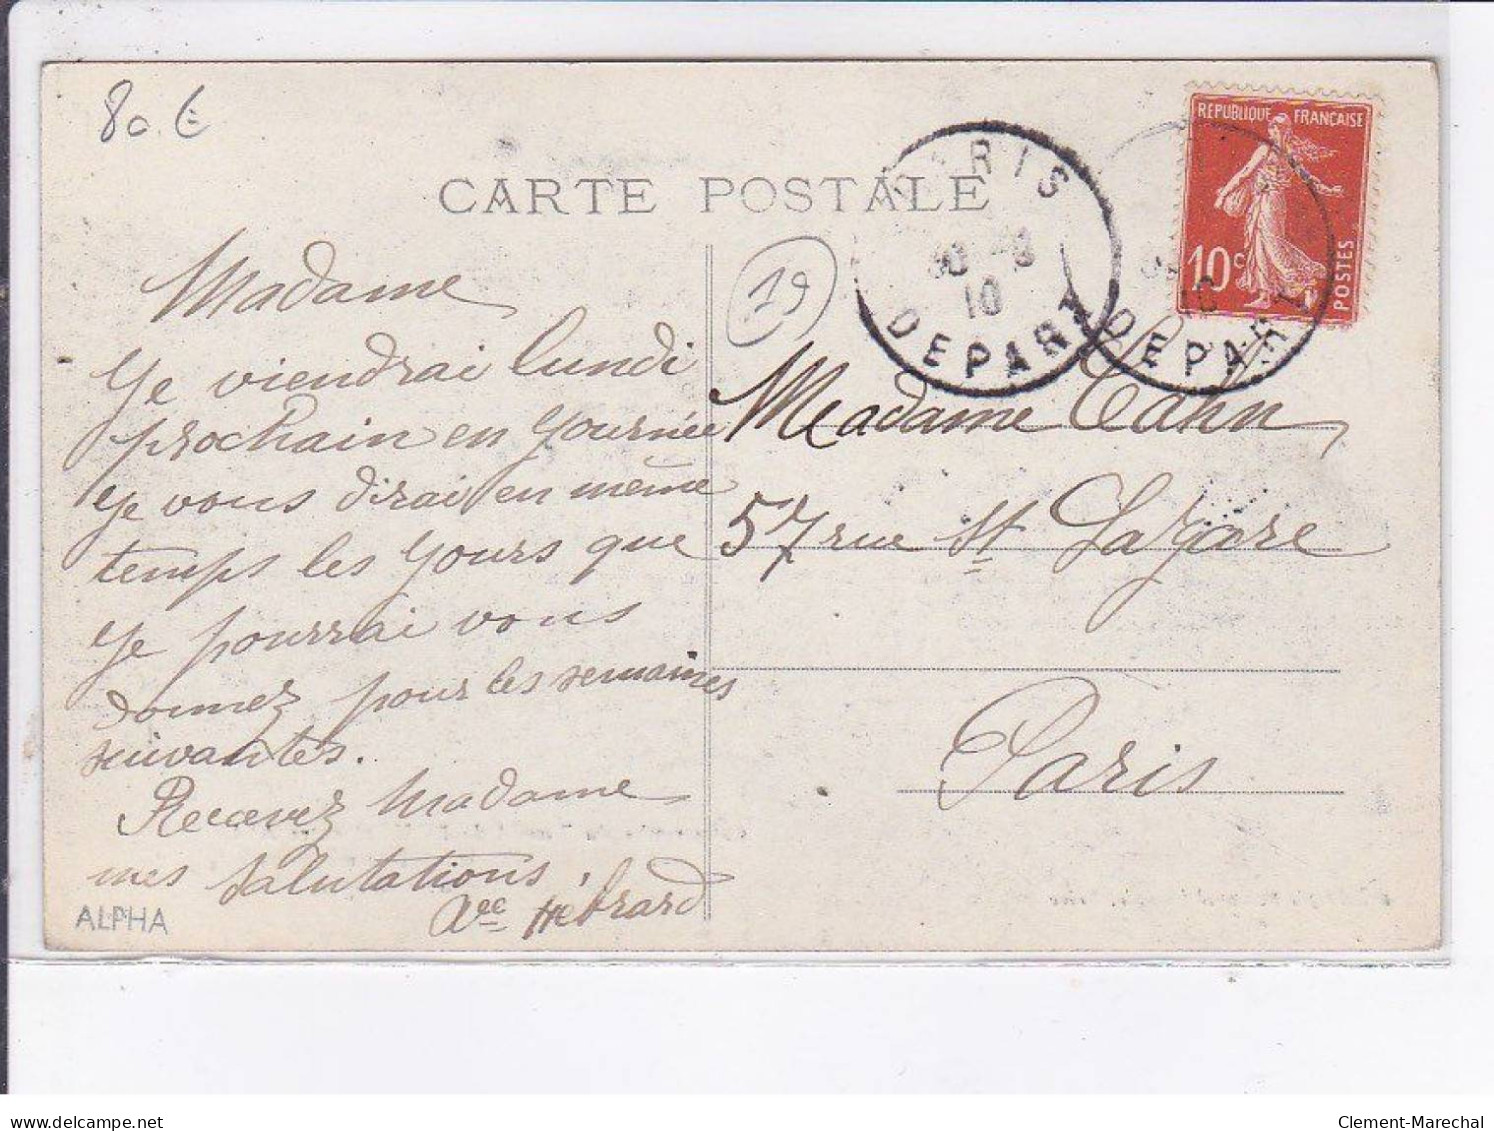 80 €
CARTE POSTALE
REPUBLIQUE FRANÇAISE
10c
POSTES
PARIS
10
DEPART
10
DEPART
19
Madame
Je viendrai lundi
prochain en journée
Je vous dirai en même
temps les jours que
je pourrai vous
donnez pour les semaines
suivantes.
Recevez Madame
mes salutations.
Vve Hébrard
ALPHA
Madame Cahn
57 rue St Lazare
Paris
delcampe.net
Clement-Marechal